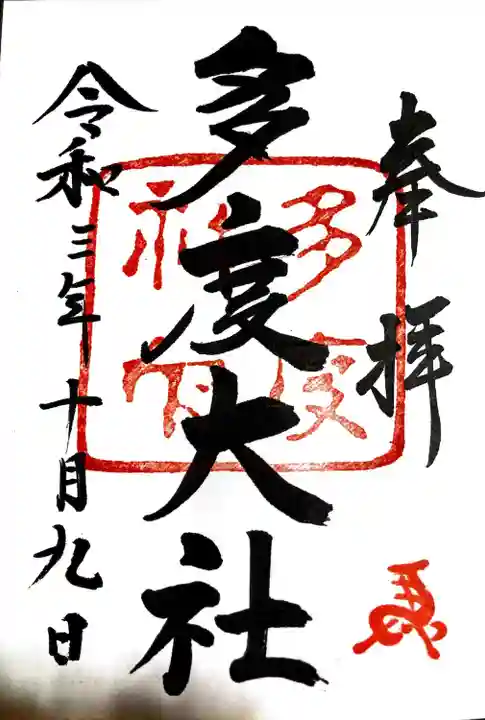 奉拝
多度大社
令和三年十月九日
多度
神社
馬